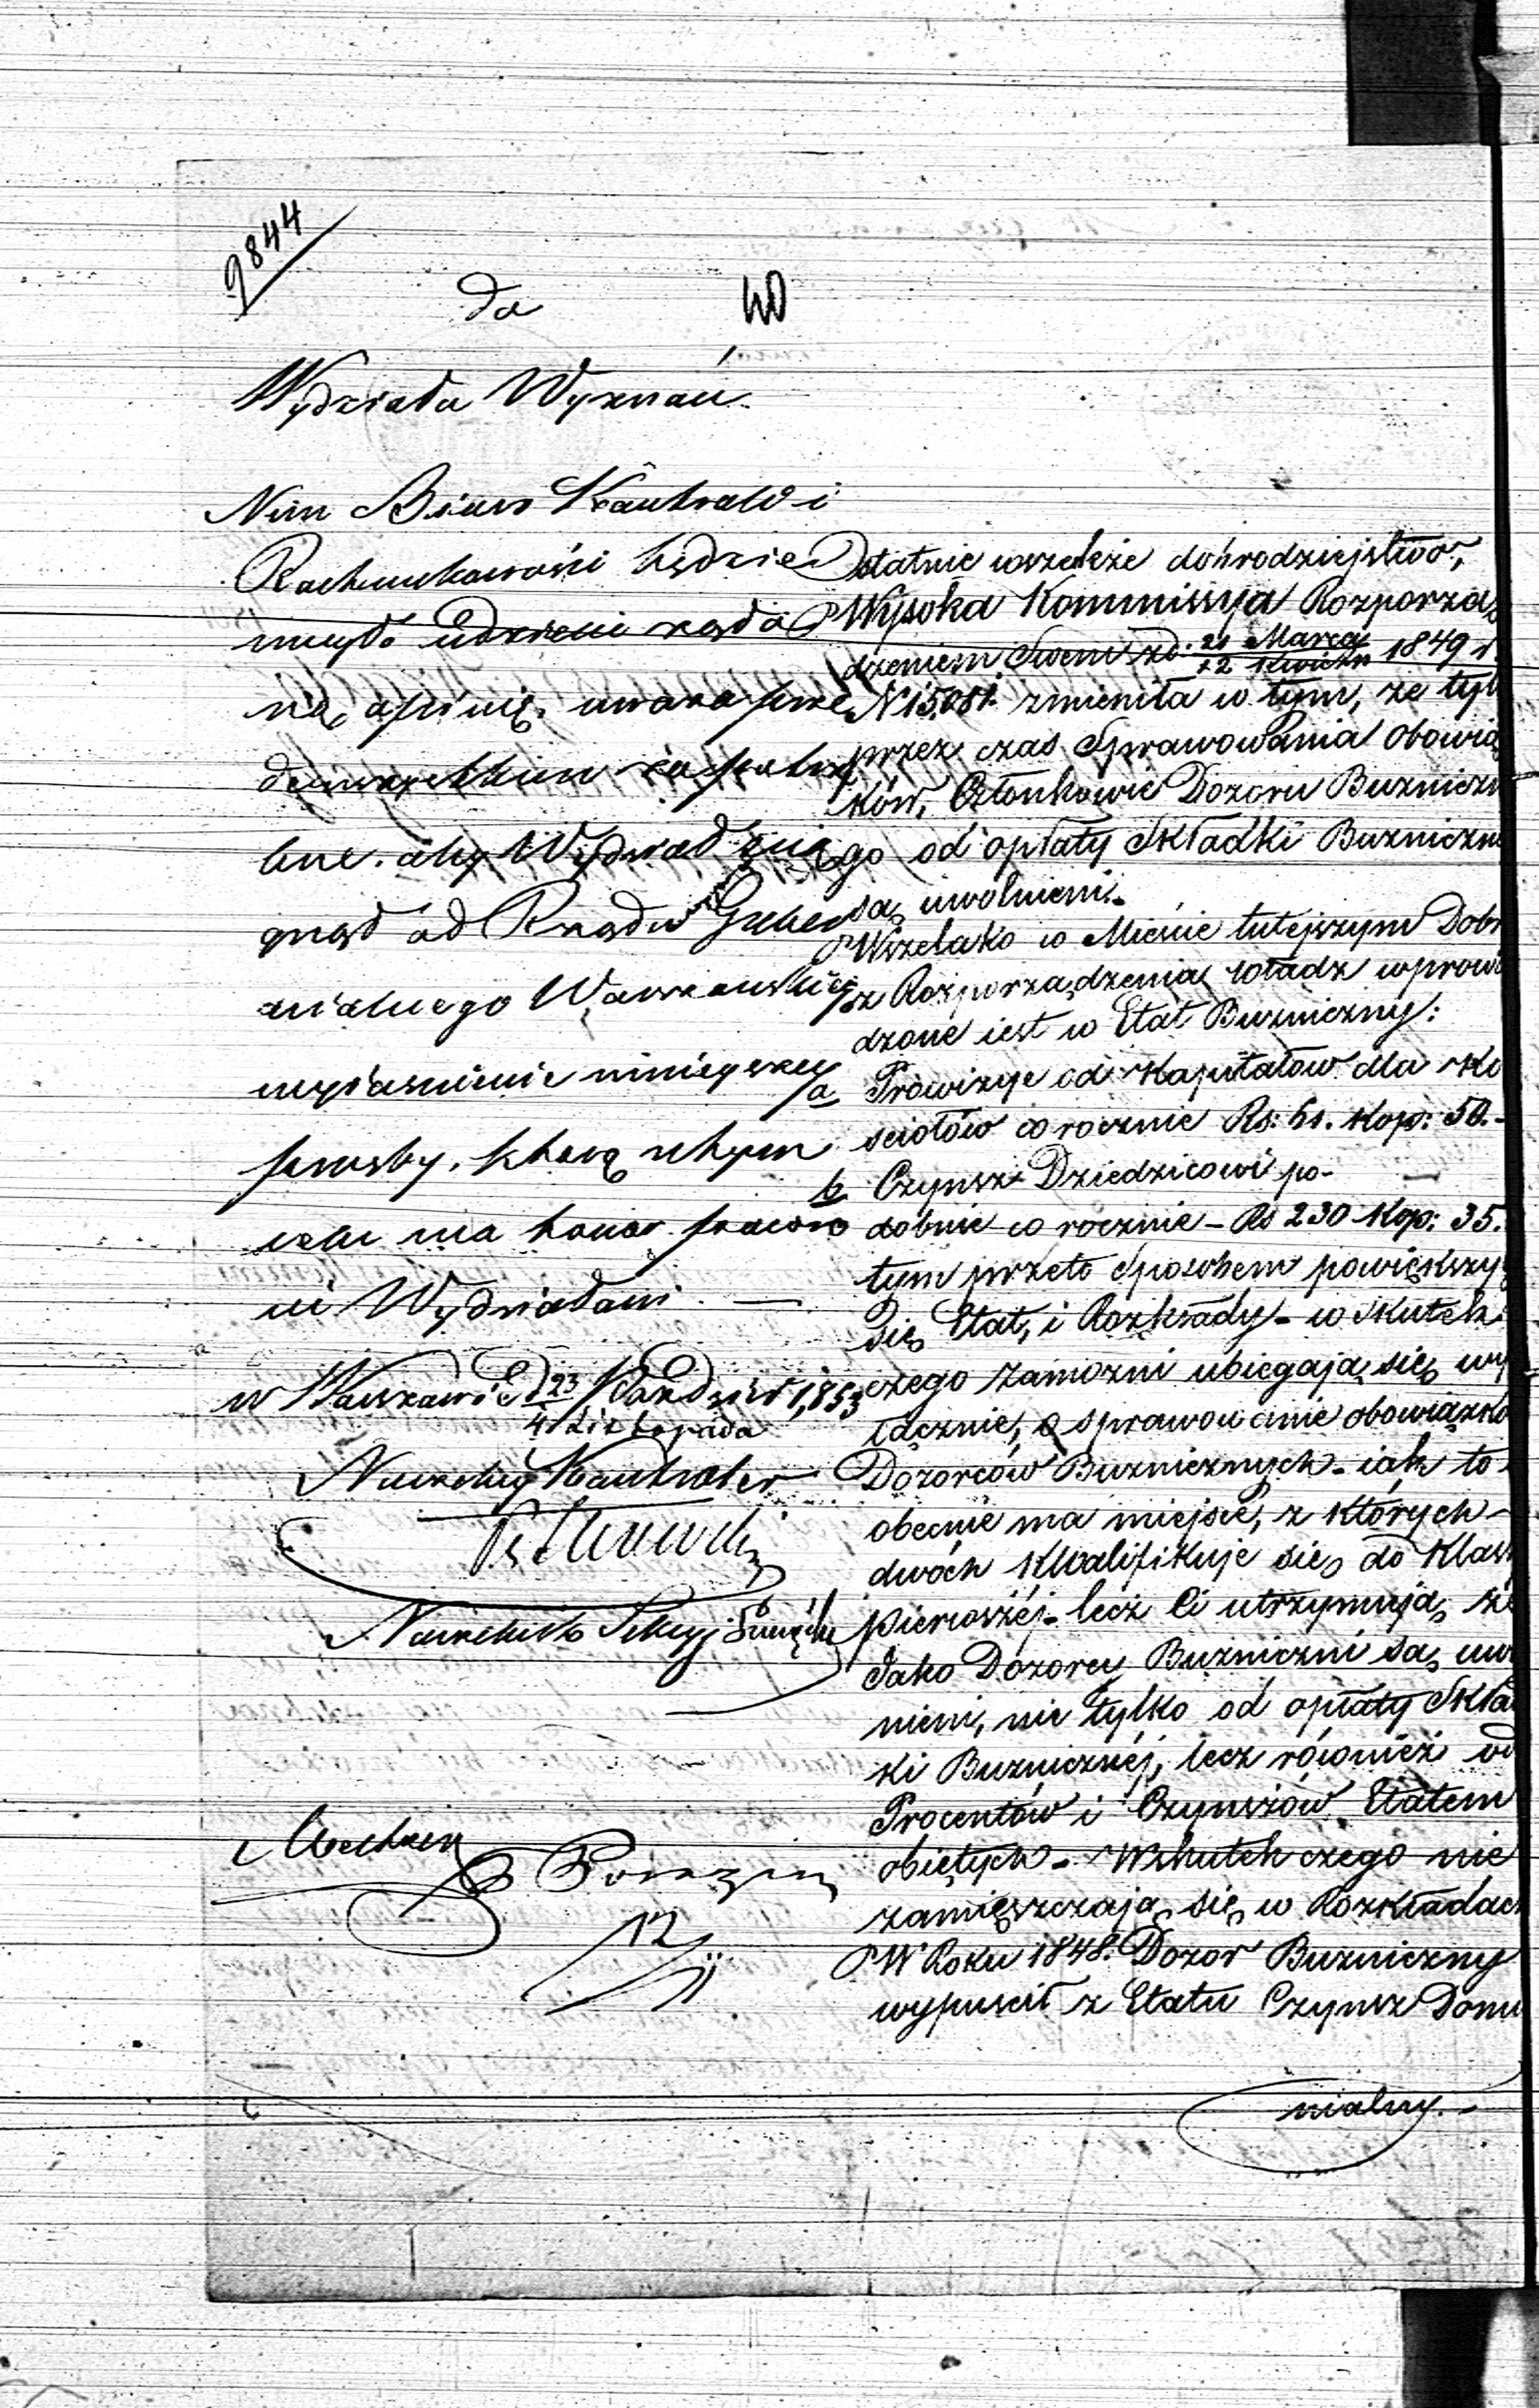 9844
do
Wydziału Wyznań.
Nim Biuro Kontroll i
Rachunkowości będzie
mogło udzielić żądaną
opinię, uważa
aby Wydział
od Rządu Guber
nialnego Warszawskiego
wyjaśnienie niniejszej
prośby, którą
ma honor
Wydziałowi. —
w Warszawie d 23 Paździer 1,853
4 Listopada
Naczelny Kontroler
Naczelnik Sekcyi
12
Ostatnie wszelkie dobrodziejstwo,
Wysoka Kommissya Rozporzą
dzeniem Swem zd: 21 Marca 1849 r.
/ 2 Kwietn
N 15,081. zmieniła w tym, że tyl
przez czas Sprawowania Obowią
ków, Członkowie Dozoru Buzniczn
go od opłaty Składki Buzniczn
są uwolnieni.
Wszelako w Mieście tutejszym Dobr
z Rozporządzenia władz wprowa
dzone iest w Etat Buzniczny:
a Prowizye od Kapitałów dla Ko
sciołów co rocznie Rs: 61. Kop: 50.-
b Czynsz Dziedzicowi po-
dobnie co rocznie - Rs 230 Kop: 35.
tym przeto Sposobem powiększy
Się Etat, i Rozkłady - w Skutek
czego zamożni ubiegają się wy
łącznie, o sprawowanie obowiązkó
Dozorców Buznicznych - iak to
obecnie ma miejsce, z których -
dwóch Kwalifikuje się do Klas
pierwszéj - lecz Ci utrzymują, że
Jako Dozorcy Buzniczni są uwo
nieni, nie tylko od opłaty Skład
ki Buznicznéj, lecz również od
Procentów i Czynszów Etatem
obiętych - Wskutek czego nie
zamięszczają się w Rozkładach
W Roku 1848. Dozor Buzniczny
wypuscił z Etatu Czynsz Domi
nialny. -